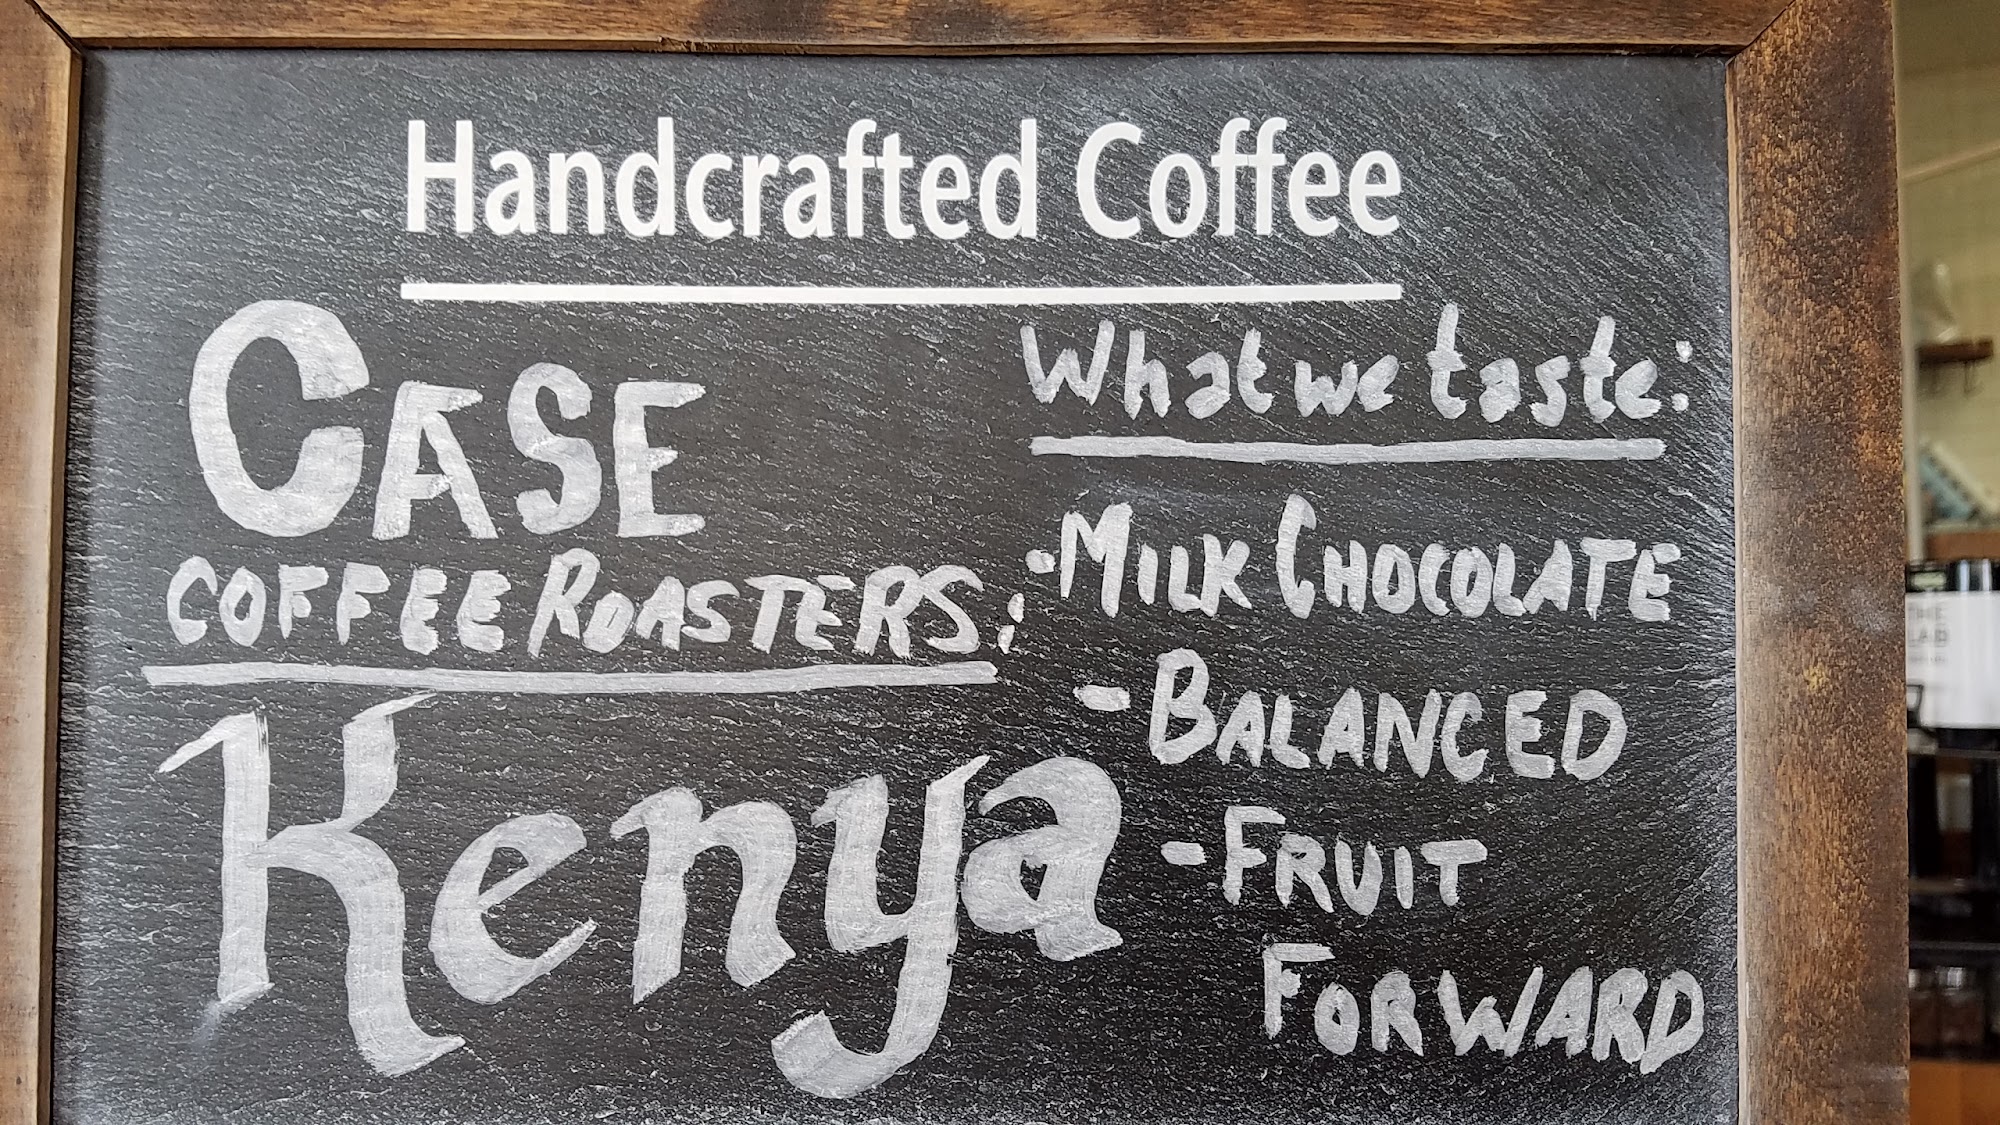 Handcrafted Coffee
CASE
COFFEE ROASTERS:
Kenya
What we taste:
· MILK CHOCOLATE
- BALANCED
- FRUIT
FORWARD
THE
LAB